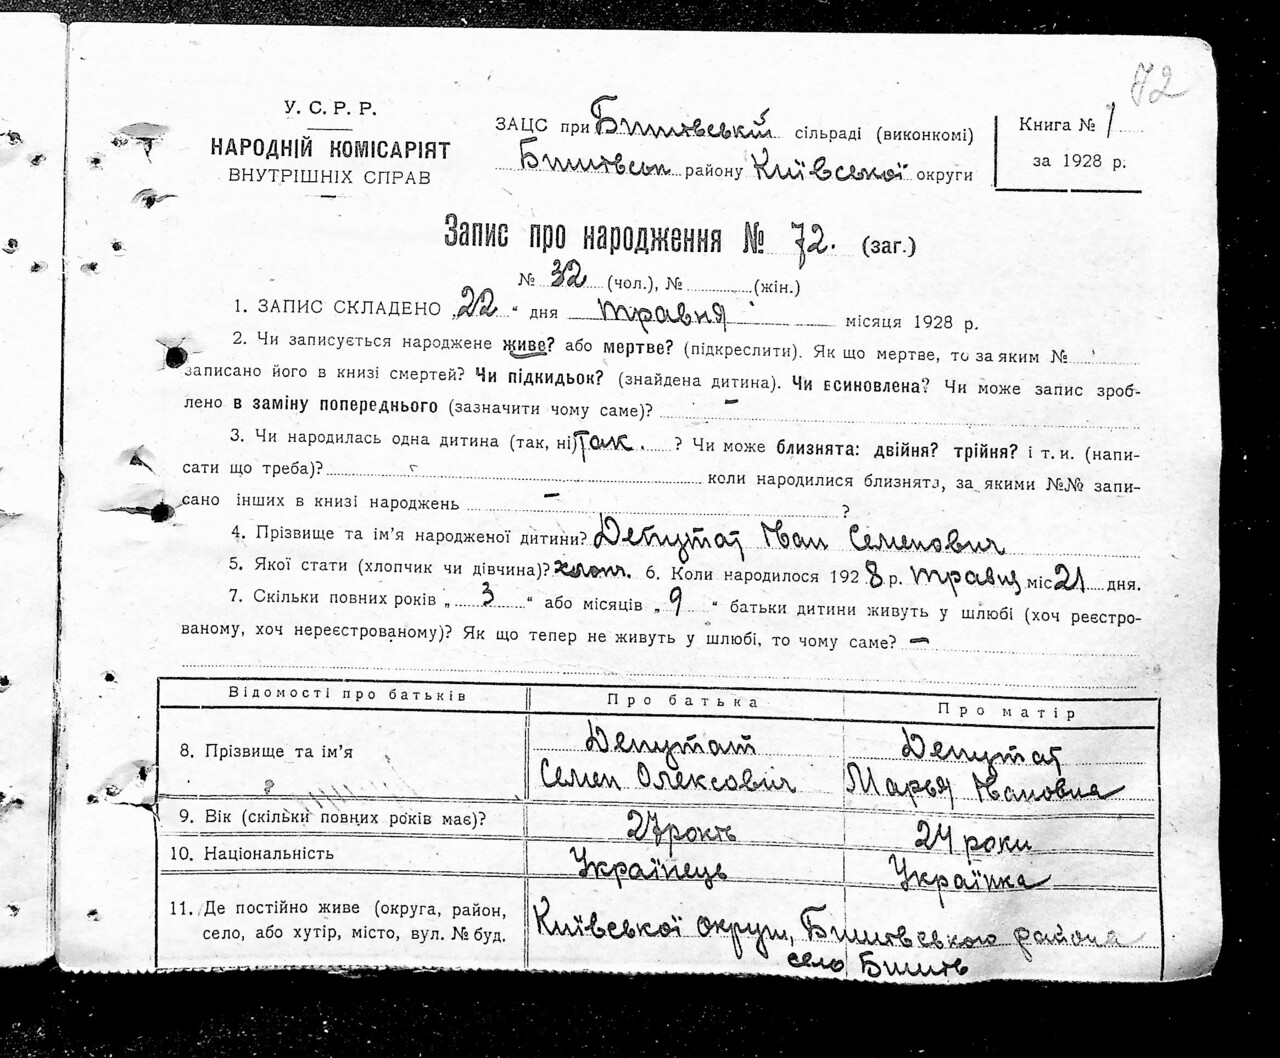 72
У. С. Р. Р.
НАРОДНІЙ КОМІСАРІЯТ
ВНУТРІШНІХ СПРАВ
ЗАЦС при Бишівській сільраді (виконкомі)
Бишівськ району Київської округи
Книга № 1
за 1928 р.
Запис про народження № 72. (заг.)
№ 32 (чол.), № (жін.)
1. ЗАПИС СКЛАДЕНО „22“ дня травня місяця 1928 р.
2. Чи записується народжене живе? або мертве? (підкреслити). Як що мертве, то за яким №
записано його в книзі смертей? Чи підкидьок? (знайдена дитина). Чи всиновлена? Чи може запис зроб-
лено в заміну попереднього (зазначити чому саме)? –
3. Чи народилась одна дитина (так, ні) Так. ? Чи може близнята: двійня? трійня? і т. и. (напи-
сати що треба)? коли народилися близнята, за якими №№ запи-
сано інших в книзі народжень – ?
4. Прізвище та ім'я народженої дитини? Депутат Іван Семенович
5. Якої стати (хлопчик чи дівчина)? хлопч. 6. Коли народилося 1928 р. травня міс 21 дня.
7. Скільки повних років „ 3 “ або місяців „ 9 “ батьки дитини живуть у шлюбі (хоч реєстро-
ваному, хоч нереєстрованому)? Як що тепер не живуть у шлюбі, то чому саме? –
Відомості про батьків Про батька Про матір
8. Прізвище та ім'я Депутат Депутат
Семен Олексович Марья Івановна
9. Вік (скільки повних років має)? 27 років 24 роки
10. Національність Українець Українка
11. Де постійно живе (округа, район, Київської округи, Бишівського района
село, або хутір, місто, вул. № буд. село Бишів